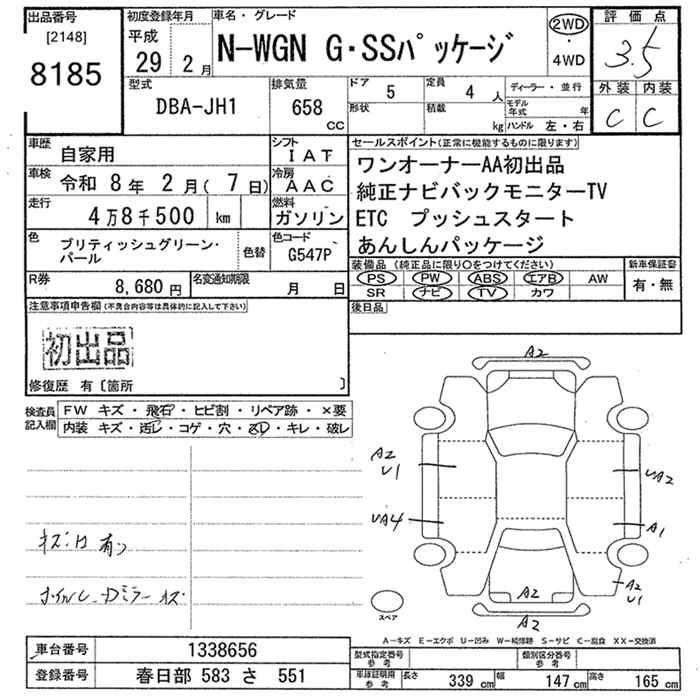 出品番号
[2148]
8185
初度登録年月
平成
29 2月
車名・グレード
N-WGN G・SSパッケージ
2WD
・
4WD
評価点
3.5
外装 内装
C C
型式
DBA-JH1
排気量
658
CC
ドア
5
定員
4人
形状
積載
kg
ディーラー・並行
モデル年式 年
ハンドル 左・右
車歴
自家用
シフト
IAT
車検
令和 8年 2月( 7日)
冷房
AAC
走行
4万8千500 km
燃料
ガソリン
色
ブリティッシュグリーン・パール
色替
色コード
G547P
R券
8,680円
名変通知期限
月 日
セールスポイント(正常に機能するものに限ります)
ワンオーナーAA初出品
純正ナビバックモニターTV
ETC プッシュスタート
あんしんパッケージ
装備品(純正品に限り○をつけてください)
PS PW ABS エアB AW
SR ナビ TV カワ
新車保証書
有・無
後日品
注意事項申告欄(不具合内容等は具体的に記入して下さい)
初出品
修復歴 有〔箇所 〕
検査員記入欄
FW キズ・飛石・ヒビ割・リペア跡・×要
内装 キズ・汚レ・コゲ・穴・スレ・キレ・破レ
キズ凹有ノ
ホイルC
Dミラーキズ
A2
A2
U1
UA4
UA2
A1
A2
U1
A2
A2
スペア
A-キズ E-エクボ U-凹み W-補修跡 S-サビ C-腐食 XX-交換済
車台番号
1338656
登録番号
春日部 583 さ 551
型式指定番号
参考
類別区分番号
参考
車検証明用
参考
長さ 339cm 幅 147cm 高さ 165cm